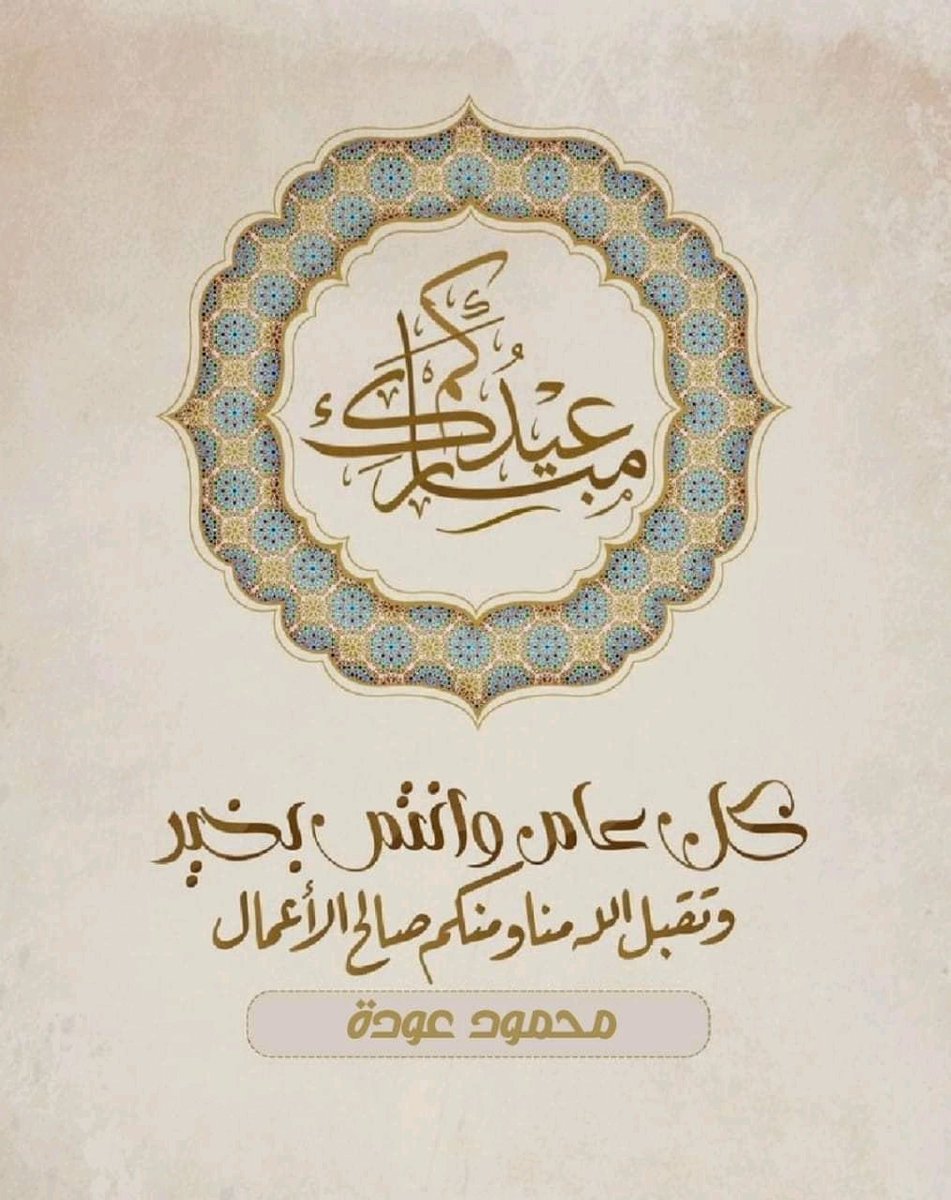 عيدكم
مبارك
كل عام وانتم بخير
وتقبل الله منا ومنكم صالح الأعمال
محمود عودة